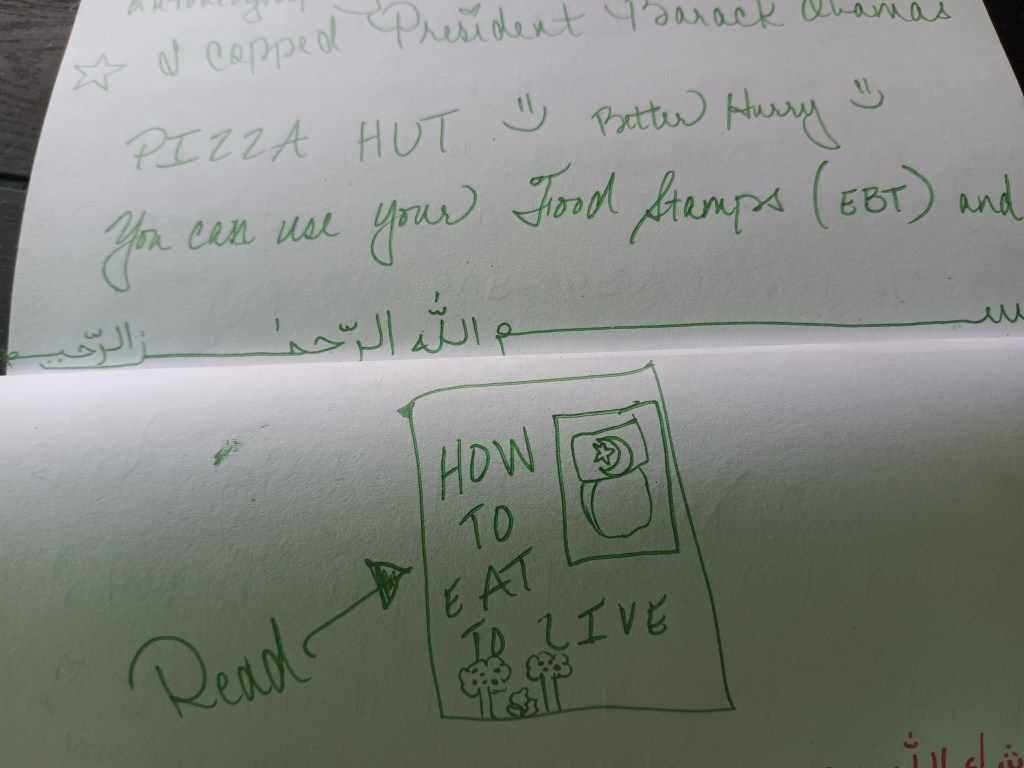 ☆ I copped President Barack Obamas
PIZZA HUT Better Hurry
You can use your Food Stamps (EBT) and
بســـــم اللّٰه الرّحمٰـــــن الرّحيـــم
HOW
TO
EAT
TO LIVE
Read